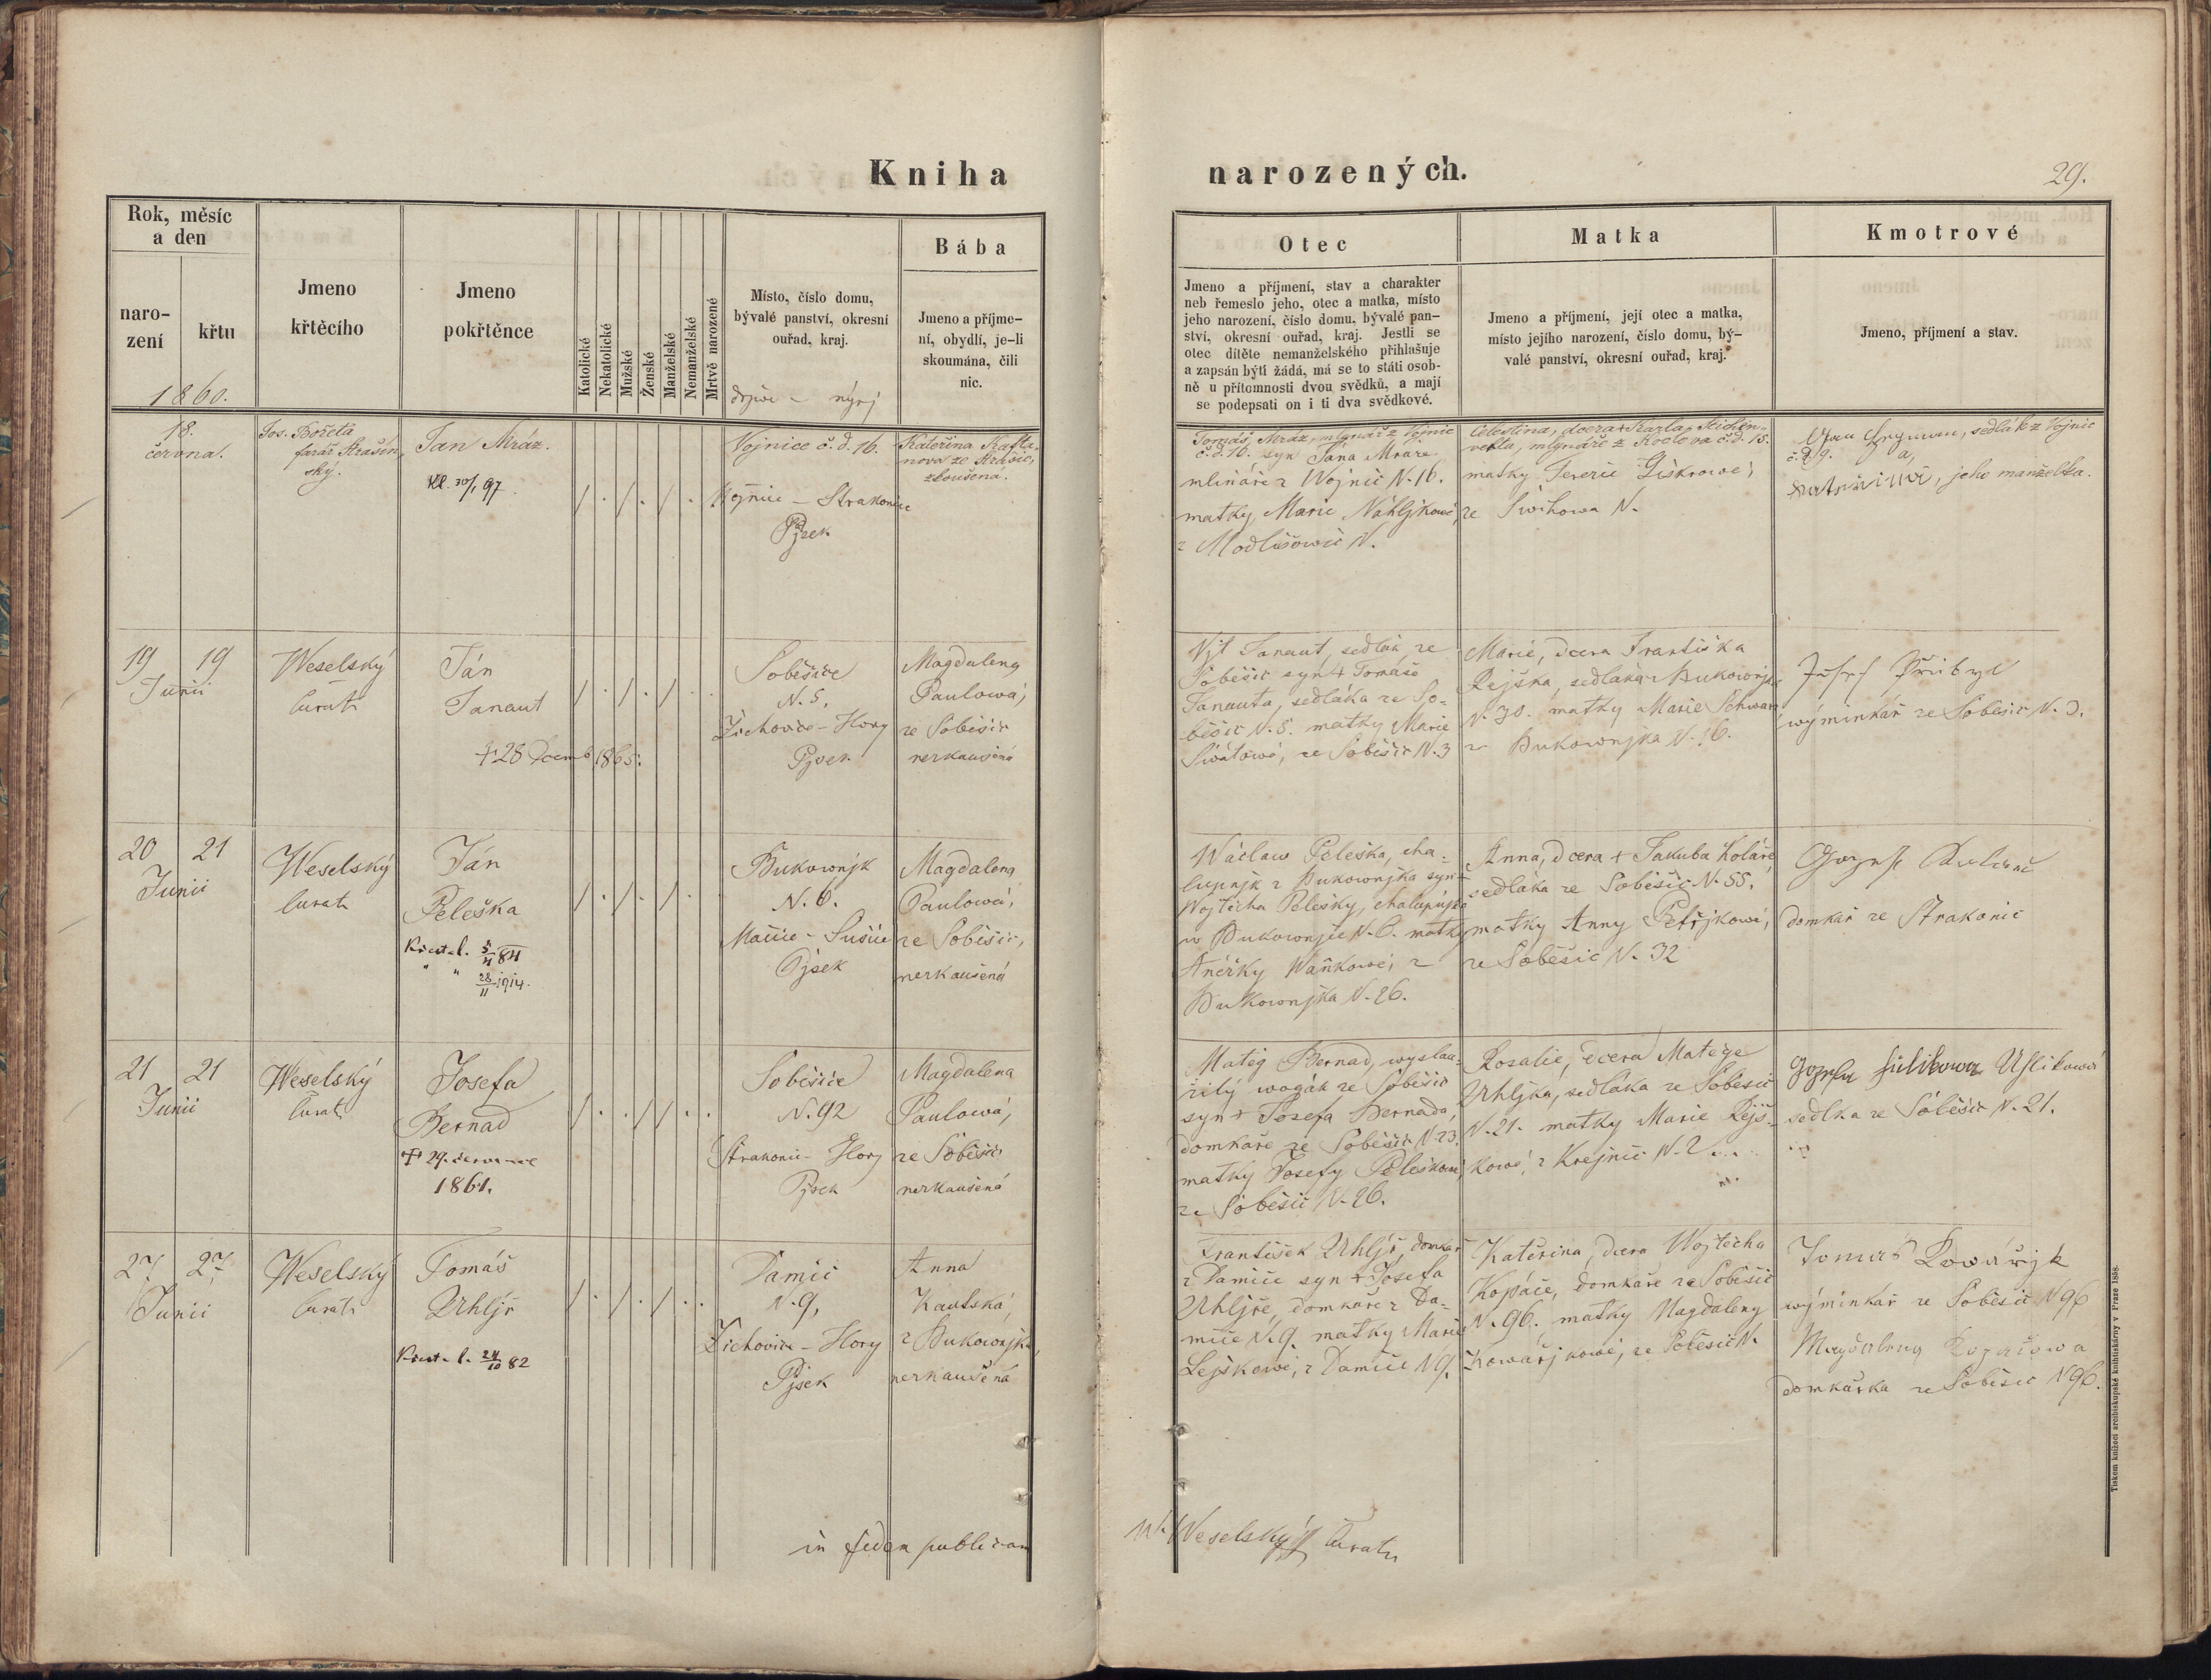 Kniha narozených.
29.
Rok, měsíc
a den
naro-
zení
křtu
1860.
Jmeno
křtěcího
Jmeno
pokřtěnce
Katolické
Nekatolické
Mužské
Ženské
Manželské
Nemanželské
Mrtvě narozené
Místo, číslo domu,
bývalé panství, okresní
ouřad, kraj.
nýnj
Bába
Jmeno a příjme-
ní, obydlí, je-li
skoumána, čili
nic.
Otec
Jmeno a příjmení, stav a charakter
neb řemeslo jeho, otec a matka, místo
jeho narození, číslo domu, bývalé pan-
ství, okresní ouřad, kraj. Jestli se
otec dítěte nemanželského přihlašuje
a zapsán býti žádá, má se to státi osob-
ně u přítomnosti dvou svědků, a mají
se podepsati on i ti dva svědkové.
Matka
Jmeno a příjmení, její otec a matka,
místo jejího narození, číslo domu, bý-
valé panství, okresní ouřad, kraj.
Kmotrové
Jmeno, příjmení a stav.
18.
června.
Jos. Bořeta
farář Strašín
ský.
Jan Mráz.
Vojnice č.d. 16.
Wojnice - Strakonice
Pjsek
Kateřina
zkoušená.
Tomáš Mráz, mlynář z Vojnic
č.d. 16. syn Jana Mráze
mlináře z Wojnic N. 16.
matky Marie Náhljkowé,
z Modlišowic N.
Celestina, dcera + Karla
mlynáře z č.d. 15.
matky Terezie Liškrowé,
ze Swihowa N.
sedlák z Vojnic
č. 29. a
jeho manželka.
19 19
Junii
Weselský
Curat
Ján
Janaut
+ 28 Decemb 1865.
Soběšice
N. 5,
Žichovice - Hory
Pjsek
Magdalena
Paulowá,
ze Soběšic
nezkaušená
Vjt Janaut, sedlák ze
Soběšic syn + Tomáše
Janauta, sedláka ze So-
běšic N. 5. matky Marie
Swátowé, ze Soběšic N. 3
Marie, dcera Františka
Rejška, sedláka z Bukownjka
N. 30. matky Marie
z Bukownjka N. 16.
Josef Přibyl
wýminkář ze Soběšic N. 3.
20 21
Junii
Weselský
Curat
Ján
Peleška
Křest. l. 5/4 84
" " 28/11 1914.
Bukownjk
N. 6.
Sušice
Pjsek
Magdalena
Paulowá,
ze Soběšic,
nezkaušená
Wáclaw Peleška, cha-
lupnjk z Bukownjka syn +
Wojtěcha Pelešky, chalupnjka
w Bukownjce N. 6. matky
Aněžky Waňkowé, z
Bukownjka N. 26.
Anna, dcera + Jakuba Koláře
sedláka ze Soběšic N. 55.
matky Anny Petřjkowé,
ze Soběšic N. 32
domkář ze Strakonic
21 21
Junii
Weselský
Curat
Josefa
Bernad
+ 29. července
1861.
Soběšice
N. 92
Strakonic - Hory
Pjsek
Magdalena
Paulowá,
ze Soběšic
nezkaušená
Matěg Bernad, wyslau-
žilý wogák ze Soběšic
syn + Josefa Bernada,
domkáře ze Soběšic N. 23.
matky Josefy Peleškowé,
ze Soběšic N. 26.
Rosalie, dcera Matěge
Uhljka, sedláka ze Soběšic
N. 21. matky Marie Rejš-
kowé, z Krejnic N. 2
Uhlikowá
sedlka ze Soběšic N. 21.
27 27
Junii
Weselský
Curat
Tomáš
Uhljř
Křest. l. 24/10 82
Damic
N. 9,
Žichovice - Hory
Pjsek
Anna
Kautská,
z Bukownjka,
nezkaušená
František Uhljř, domkář
z Damice syn + Josefa
Uhljře, domkáře z Da-
mice N. 9. matky Marie
Lejškowé, z Damice N 9.
Kateřina, dcera Wojtěcha
Kopáče, domkáře ze Soběšic
N. 96. matky Magdaleny
Kowářjkowé, ze Soběšic N.
Tomáš Kowářjk
wýminkář ze Soběšic N 96
Magdalena
domkářka ze Soběšic N 96.
in fidem publicam
Weselský Curat
Tiskem knížecí arcibiskupské knihtiskárny v Praze 1858.